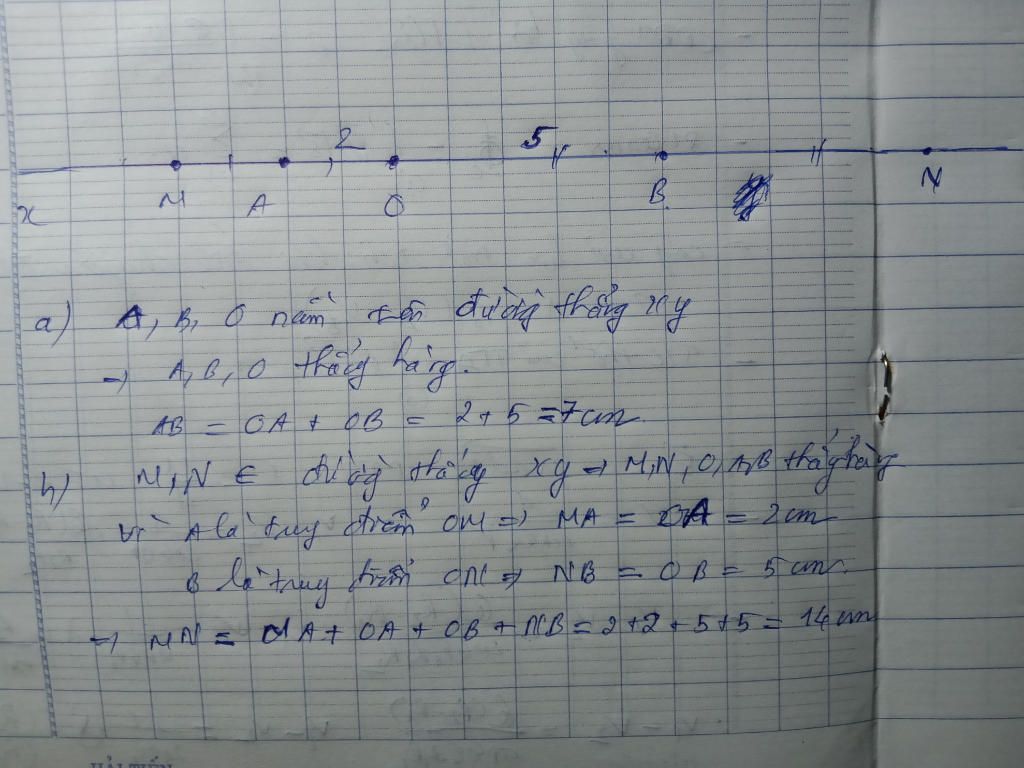 2 5
x M A O B N
a) A, B, O nằm trên đường thẳng xy
→ A, B, O thẳng hàng.
AB = OA + OB = 2 + 5 = 7 cm
b) M, N ∈ đường thẳng xy ⇒ M, N, O, A, B thẳng hàng
Vì A là trung điểm OM ⇒ MA = OA = 2 cm
B là trung điểm ON ⇒ NB = OB = 5 cm.
⇒ MN = MA + OA + OB + NB = 2 + 2 + 5 + 5 = 14 cm
HẢI TIẾN